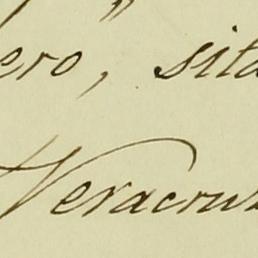 ero," sita
Veracru